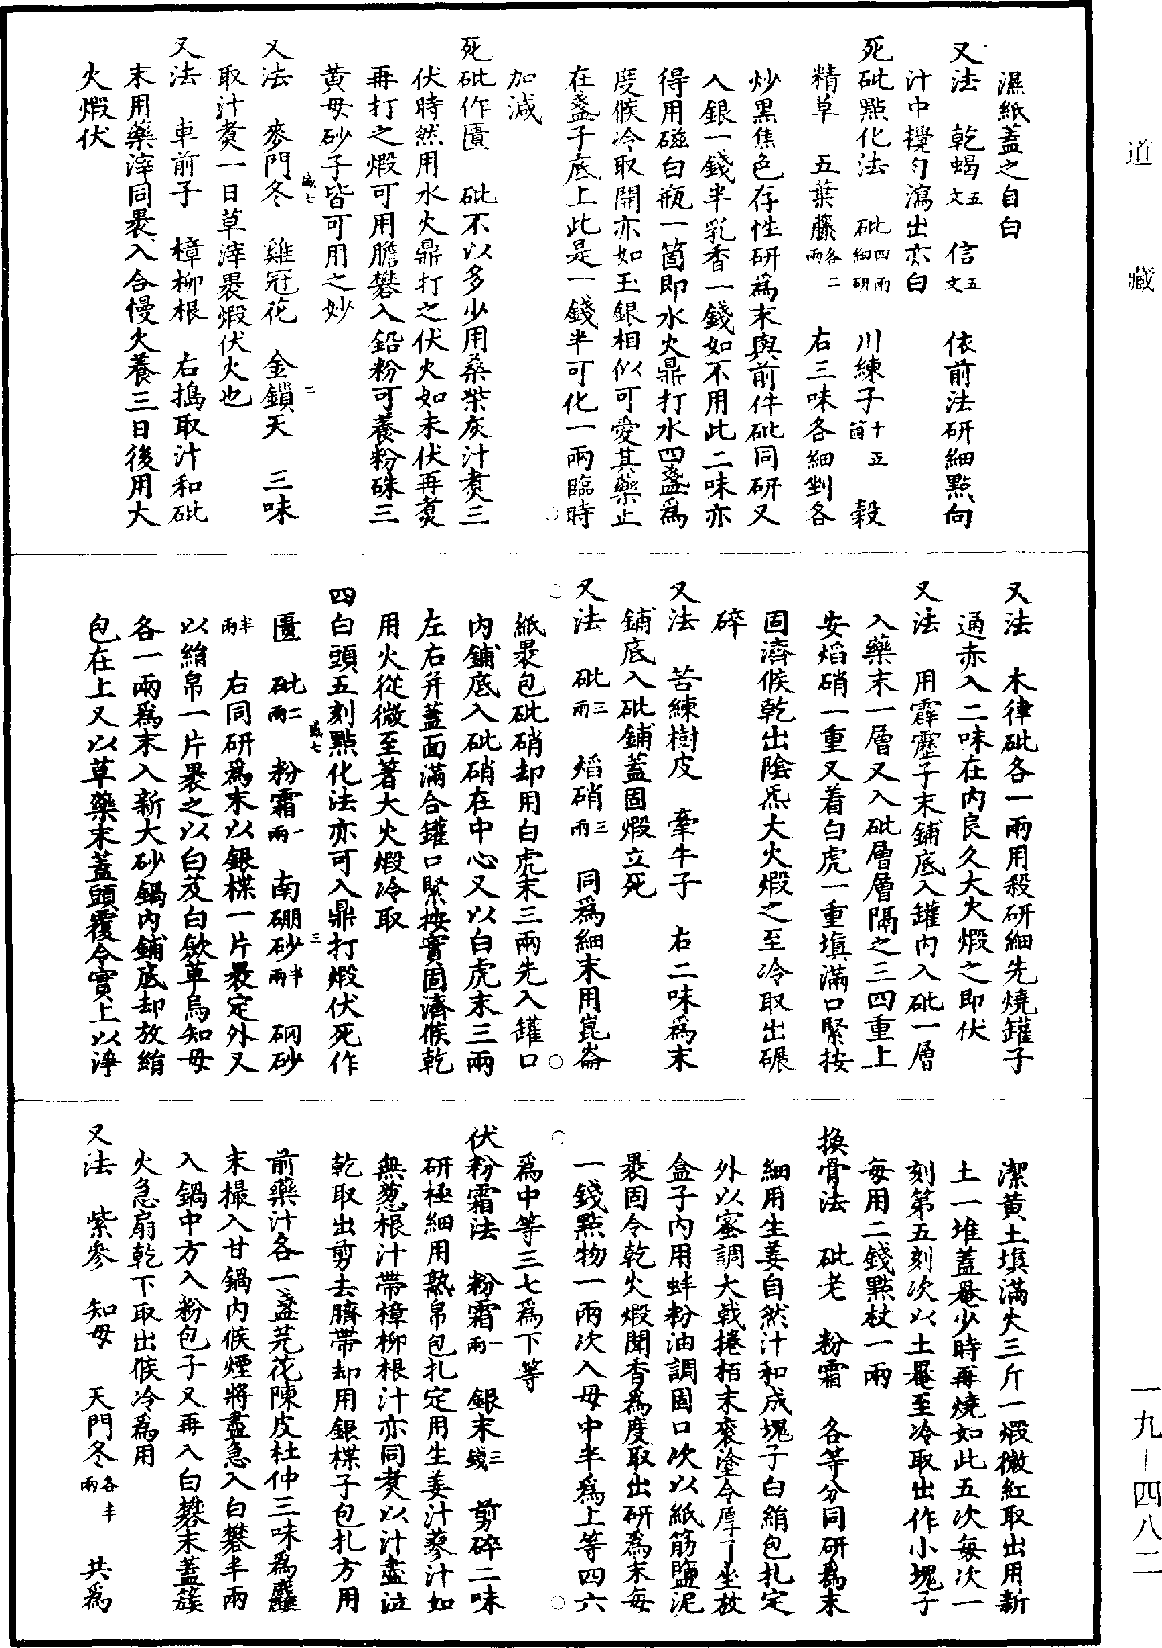 道藏
濕紙蓋之自白
又法　乾蝎五文　信五文　依前法研細點向
汁中攪勻瀉出亦白
死砒點化法　砒四兩細研　川練子十五箇　穀
精草　五葉藤各二兩　右三味各細剉各
炒黑焦色存性研爲末與前件砒同研又
入銀一錢半乳香一錢如不用此二味亦
得用磁白瓶一箇即水火鼎打水四盞爲
度候冷取開亦如玉銀相似可愛其藥止
在盞子底上此是一錢半可化一兩臨時
加減
死砒作匱　砒不以多少用桑柴灰汁煑三
伏時然用水火鼎打之伏火如未伏再煑
再打之煆可用膽礬入鉛粉可養粉硃三
黃母砂子皆可用之妙
又法　麥門冬　雞冠花　金鎖天　三味
取汁煑一日草滓裹煆伏火也
又法　車前子　樟柳根　右搗取汁和砒
末用藥滓同裹入合慢火養三日後用大
火煆伏
又法　木律砒各一兩用殺研細先燒罐子
通赤入二味在內良久大火煆之即伏
又法　用霹靂子末鋪底入罐內入砒一層
入藥末一層又入砒層層隔之三四重上
安熖硝一重又着白虎一重填滿口緊按
固濟候乾出陰炁大火煆之至冷取出碾
碎
又法　苦練樹皮　牽牛子　右二味爲末
鋪底入砒鋪蓋固煆立死
又法　砒三兩　熖硝三兩　同爲細末用崑崙
紙裹包砒硝却用白虎末三兩先入罐口
內鋪底入砒硝在中心又以白虎末三兩
左右幷蓋面滿合罐口緊按實固濟候乾
用火從微至著大火煆冷取
四白頭五刻點化法亦可入鼎打煆伏死作
匱　砒二兩　粉霜一兩　南硼砂半兩　硇砂
半兩　右同研爲末以銀楪一片裹定外又
以絹帛一片裹之以白芨白歛草烏知母
各一兩爲末入新大砂鍋內鋪底却放絹
包在上又以草藥末蓋頭覆令實上以淨
潔黃土填滿火三斤一煆微紅取出用新
土一堆蓋罨少時再燒如此五次每次一
刻第五刻次以土罨至冷取出作小塊子
每用二錢點杖一兩
換骨法　砒老　粉霜　各等分同研爲末
細用生姜自然汁和成塊子白絹包扎定
外以蜜調大戟捲栢末衮塗令厚了坐放
盒子內用蚌粉油調固口次以紙筋鹽泥
裹固令乾火煆聞香爲度取出研爲末每
一錢點物一兩次入母中半爲上等四六
爲中等三七爲下等
伏粉霜法　粉霜一兩　銀末三錢　剪碎二味
研極細用熟帛包扎定用生姜汁蓼汁如
無葱根汁帶樟柳根汁亦同煑以汁盡泣
乾取出剪去臍帶却用銀楪子包扎方用
前藥汁各一盞芫花陳皮杜仲三味爲麤
末撮入甘鍋內候煙將盡急入白礬半兩
入鍋中方入粉包子又再入白礬末蓋簇
火急扇乾下取出候冷爲用
又法　紫參　知母　天門冬各半兩　共爲
一九—四八二